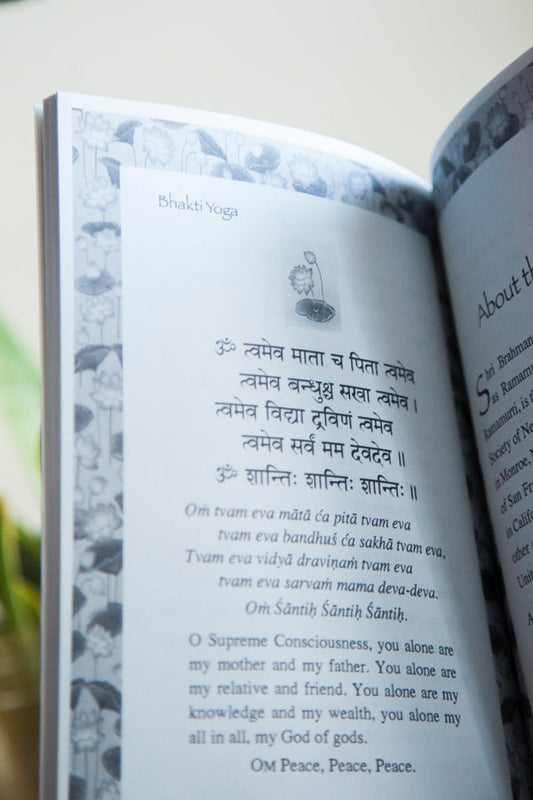 Bhakti Yoga
ॐ त्वमेव माता च पिता त्वमेव
त्वमेव बन्धुश्च सखा त्वमेव ।
त्वमेव विद्या द्रविणं त्वमेव
त्वमेव सर्वं मम देवदेव ॥
ॐ शान्तिः शान्तिः शान्तिः ॥
Oṁ tvam eva mātā ća pitā tvam eva
tvam eva bandhuś ća sakhā tvam eva,
Tvam eva vidyā draviṇaṁ tvam eva
tvam eva sarvaṁ mama deva-deva.
Oṁ Śāntiḥ Śāntiḥ Śāntiḥ.
O Supreme Consciousness, you alone are
my mother and my father. You alone are
my relative and friend. You alone are my
knowledge and my wealth, you alone my
all in all, my God of gods.
OM Peace, Peace, Peace.
About
Shri Brahman
as Ramamu
Ramamurti, is
Society of Ne
in Monroe, N
of San Fran
in Califor
other
Unit